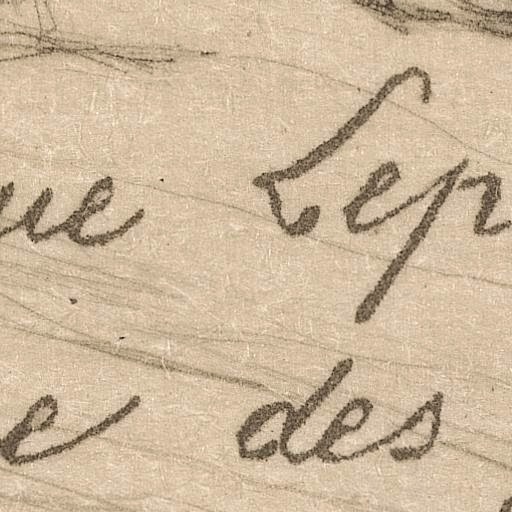 ue Lep
e des